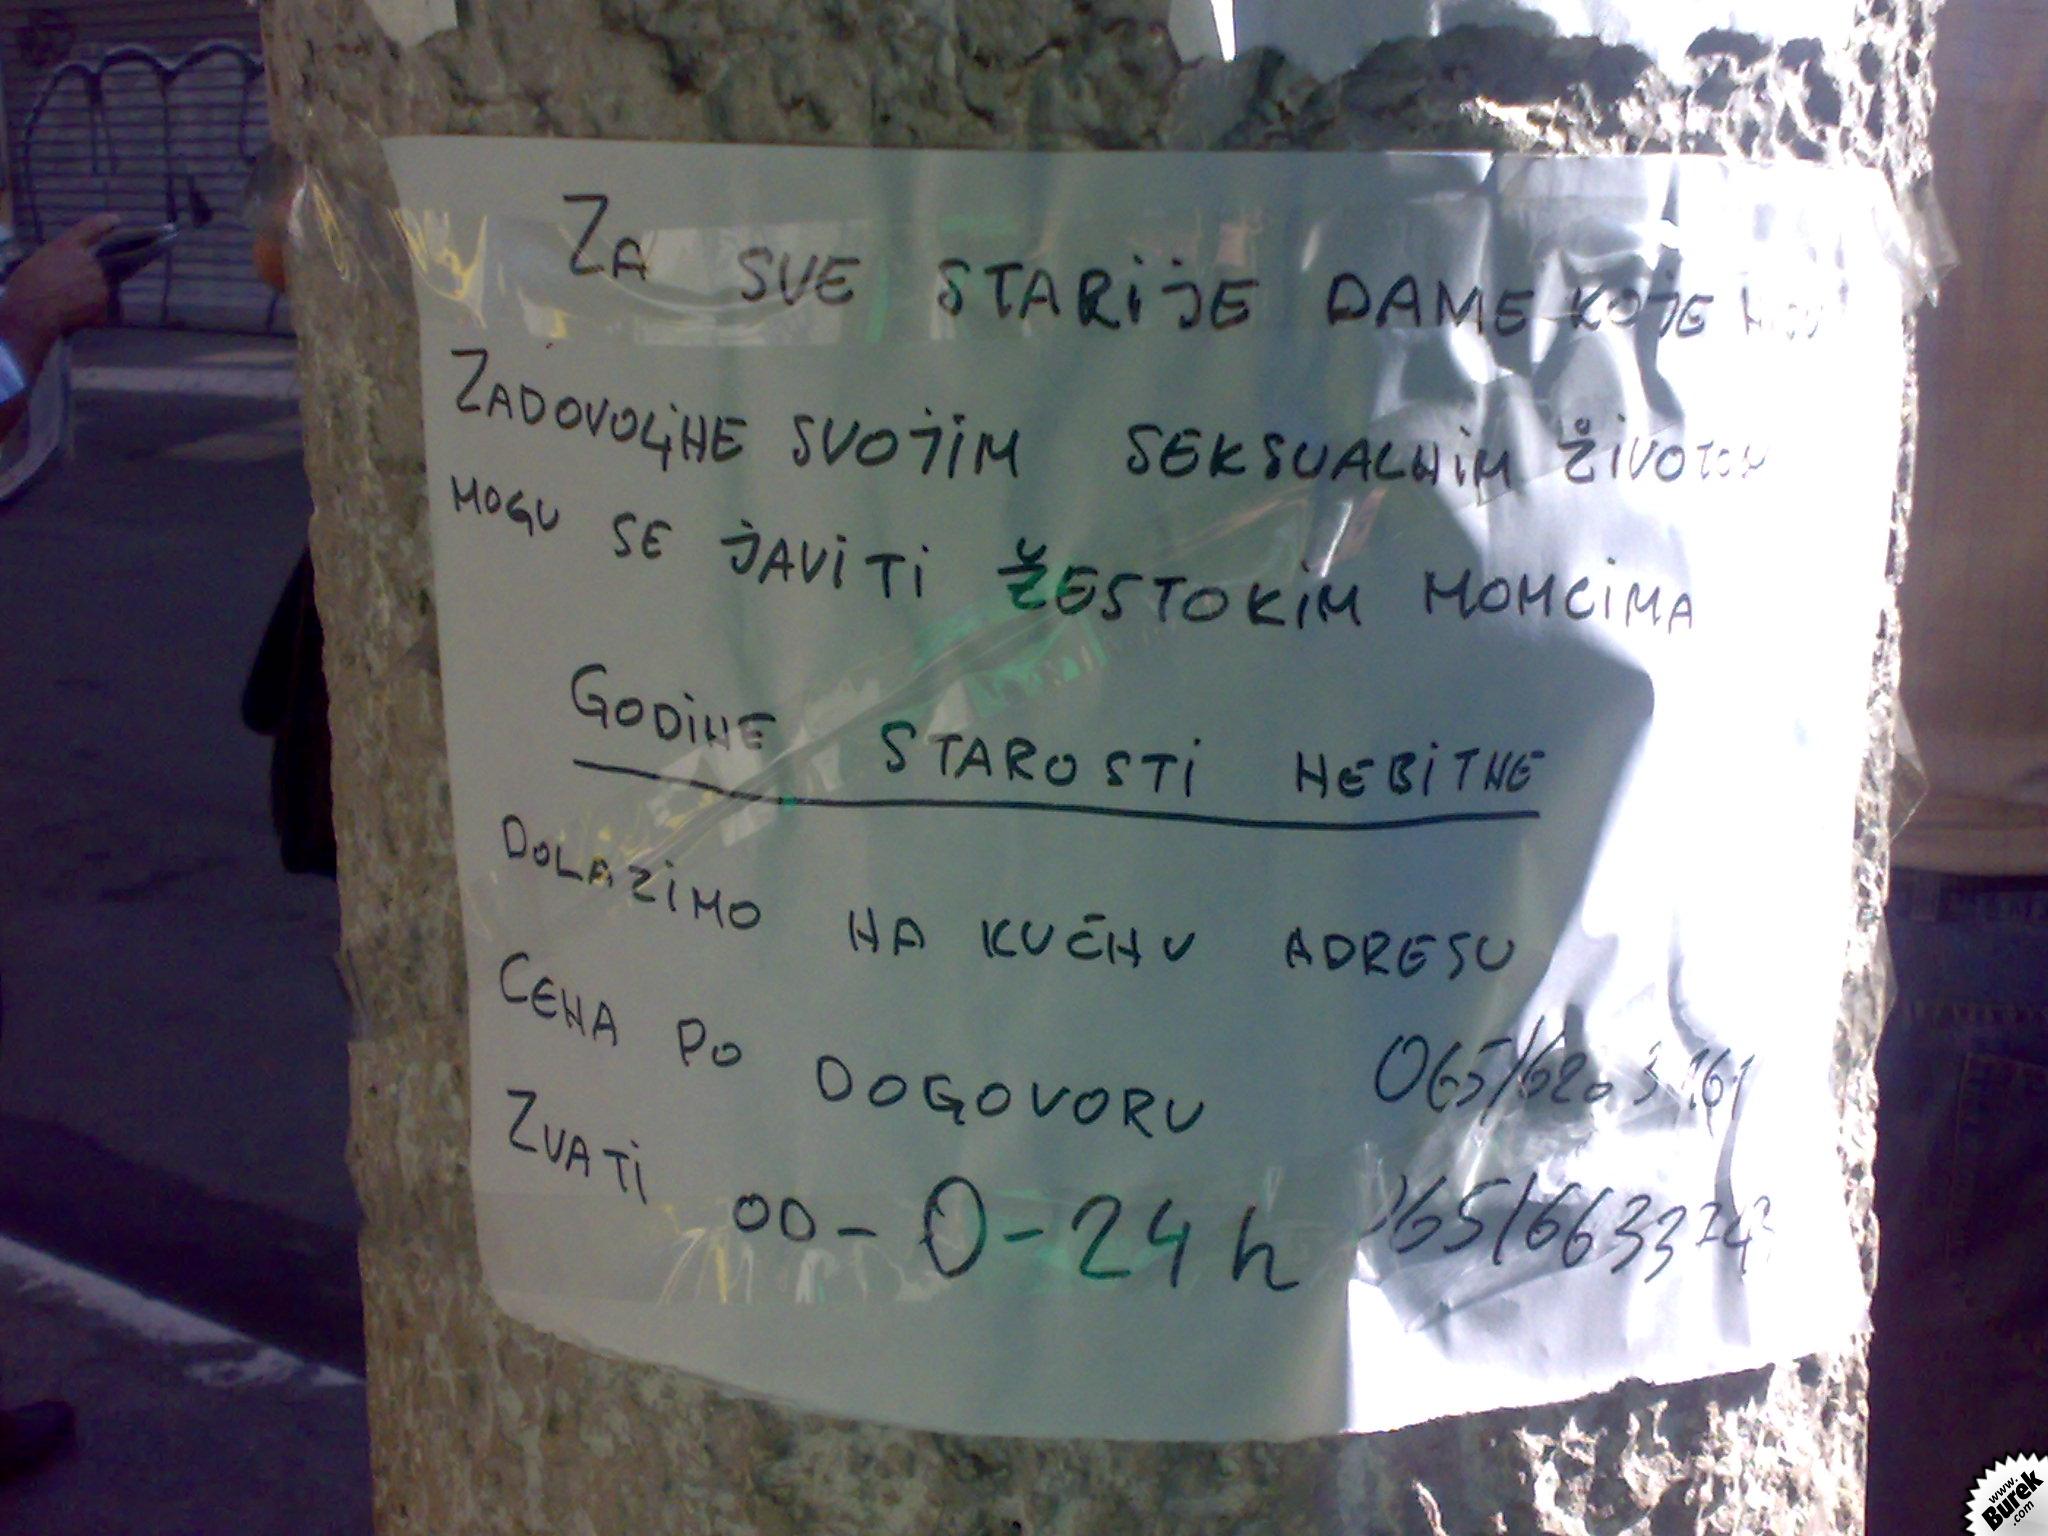 ZA SVE STARIJE DAME KOJE NISU
ZADOVOLJNE SVOJIM SEKSUALNIM ŽIVOTOM
MOGU SE JAVITI ŽESTOKIM MOMCIMA
GODINE STAROSTI NEBITNE
DOLAZIMO NA KUĆNU ADRESU
CENA PO DOGOVORU
ZVATI OD - 0 - 24 h
www.
Burek
.com